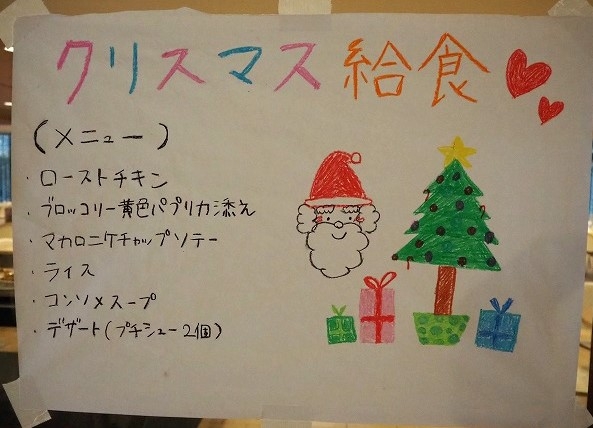 クリスマス給食
(メニュー)
・ローストチキン
・ブロッコリー黄色パプリカ添え
・マカロニケチャップソテー
・ライス
・コンソメスープ
・デザート(プチシュー2個)